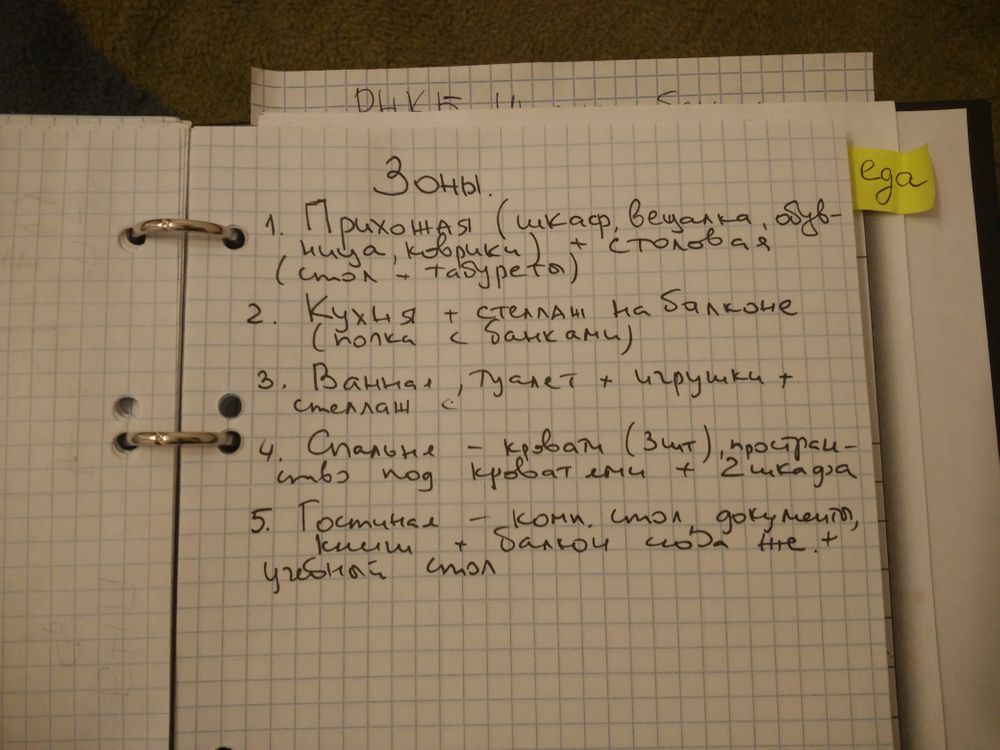 Зоны.
1. Прихожая (шкаф, вешалка, обув-
ница, коврики) + столовая
(стол + табуреты)
2. Кухня + стеллаж на балконе
(полка с банками)
3. Ванная, туалет + игрушки +
стеллаж с
4. Спальня - кровати (3 шт), простран-
ство под кроватями + 2 шкафа
5. Гостиная - комп. стол, документы,
книги + балкон сюда же +
учебный стол
еда